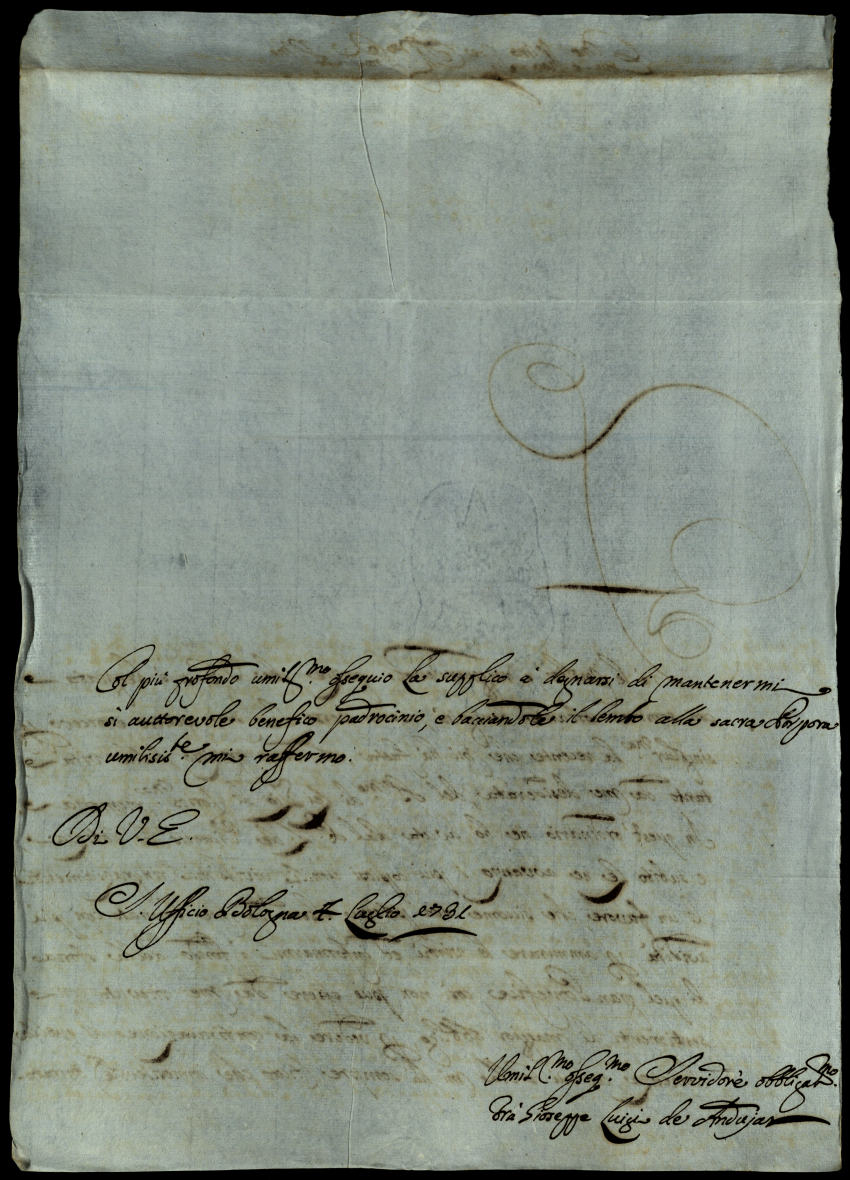 Col più profondo umil.mo ossequio La supplico à degnarsi di mantenermi
sì auttorevole benefico padrocinio, e baciandole il lembo alla sacra Porpora
umilisste. mi raffermo.
Di V. E.
S. Ufficio Bologna 4. Luglio. 1731
Umil.mo osseq.mo Servidore obbligat.mo
Frà Gioseppe Luigi de Andujar